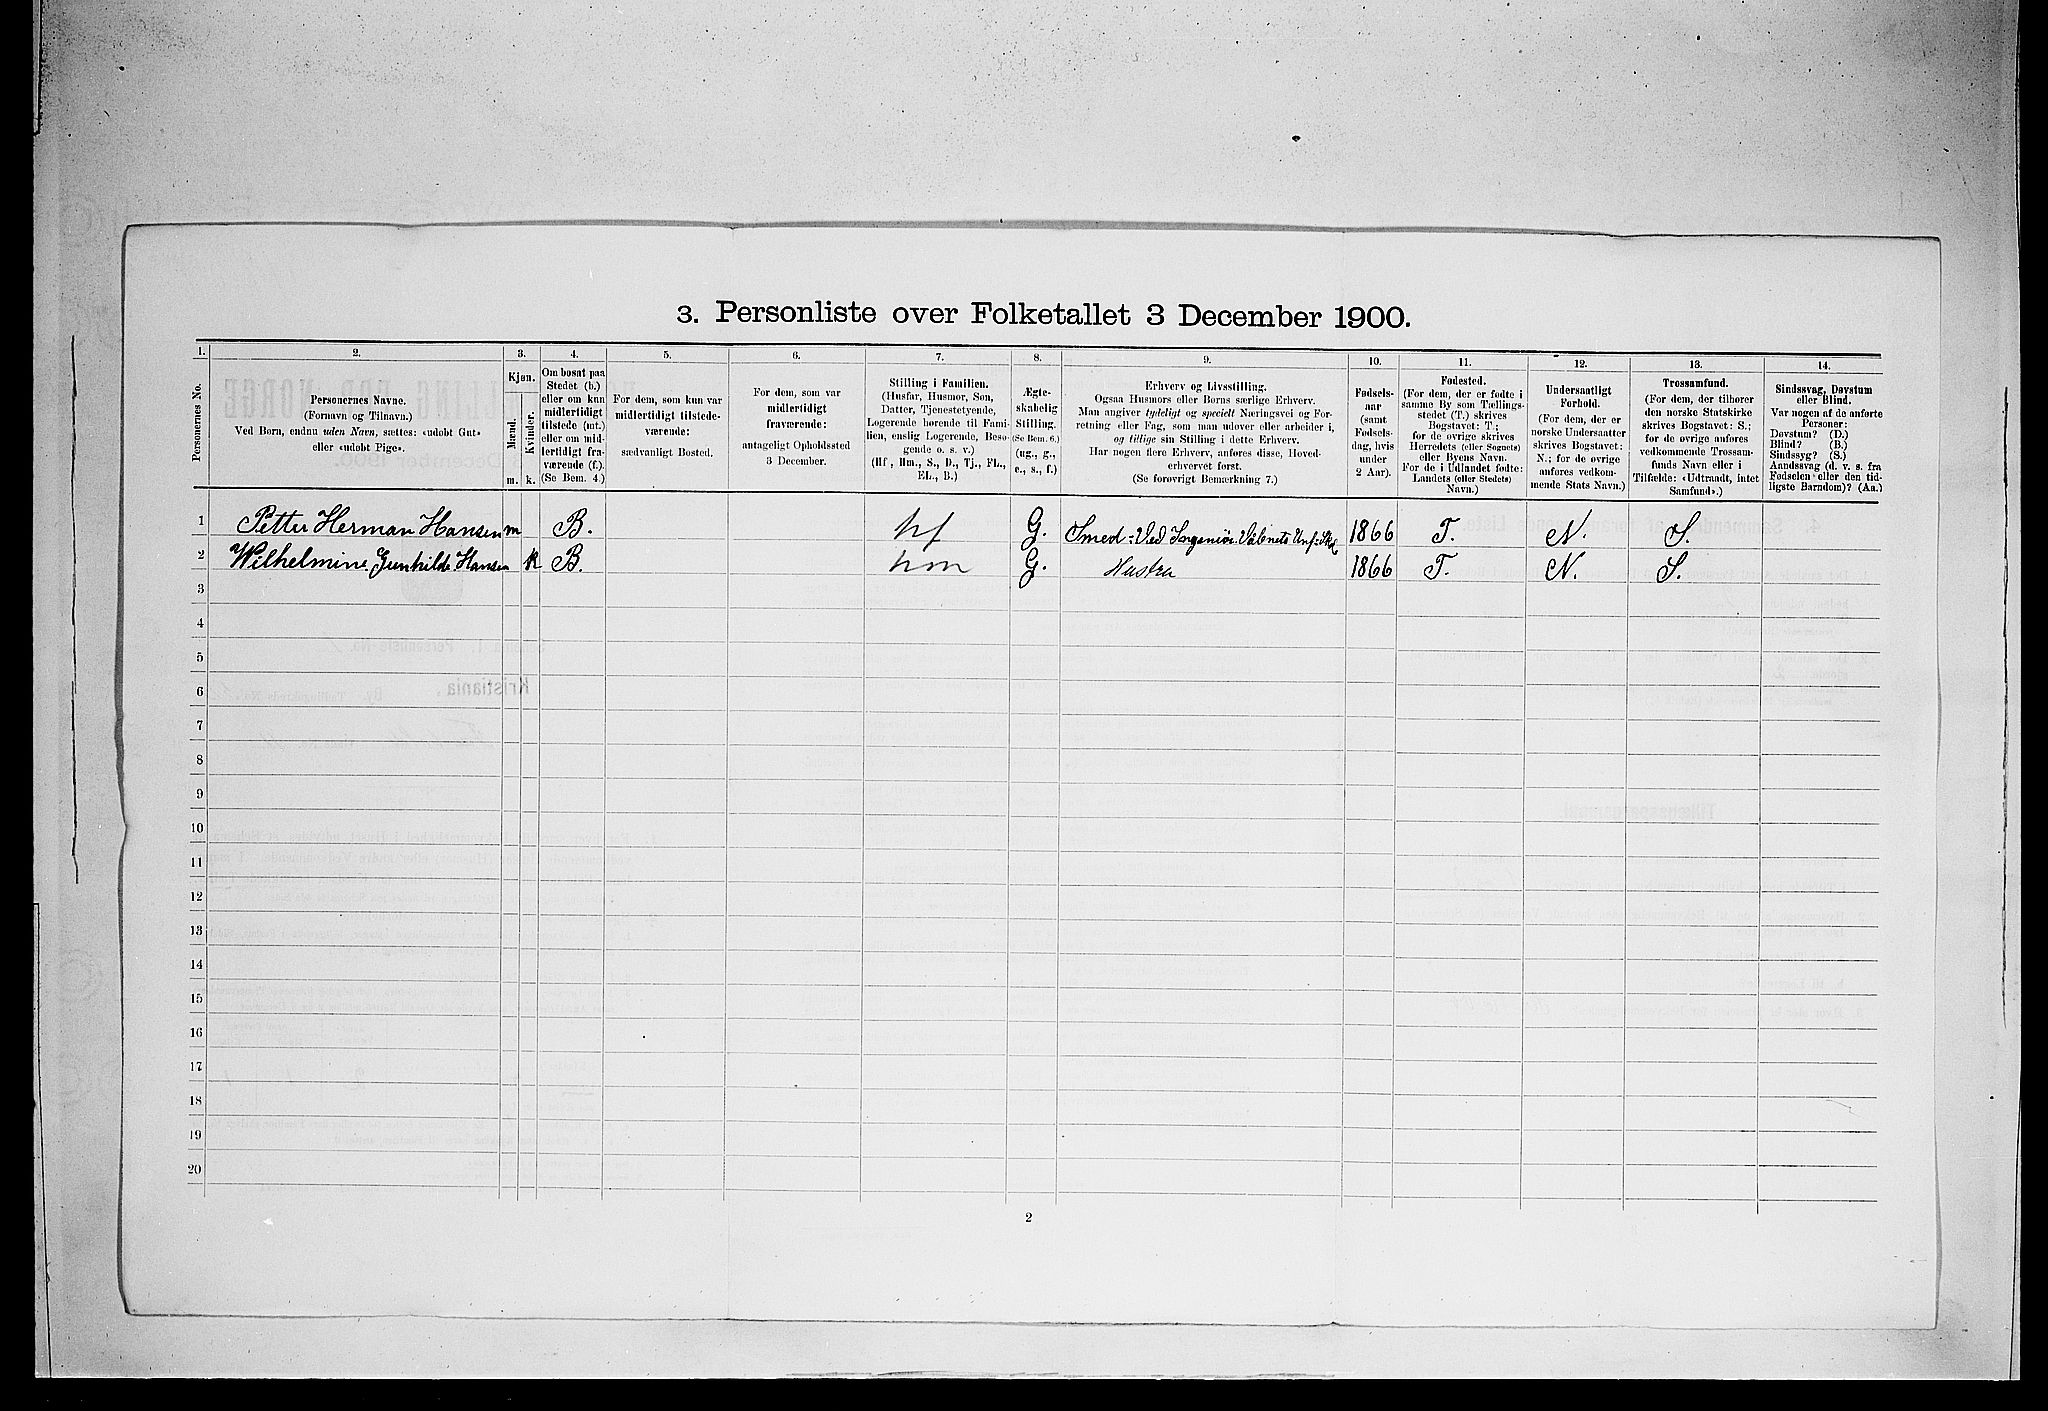 3. Personliste over Folketallet 3 December 1900.
1. 2. 3. 4. 5. 6. 7. 8. 9. 10. 11. 12. 13. 14.
Personernes No.
Personernes Navne.
(Fornavn og Tilnavn.)
Ved Børn, endnu uden Navn, sættes: «udøbt Gut»
eller «udøbt Pige».
Kjøn.
Mænd.
Kvinder.
m. k.
Om bosat paa
Stedet (b.)
eller om kun
midlertidigt
tilstede (mt.)
eller om mid-
lertidigt fra-
værende (f.).
(Se Bem. 4.)
For dem, som kun var
midlertidigt tilstede-
værende:
sædvanligt Bosted.
For dem, som var
midlertidigt
fraværende:
antageligt Opholdssted
3 December.
Stilling i Familien.
(Husfar, Husmor, Søn,
Datter, Tjenestetyende,
Logerende hørende til Fami-
lien, enslig Logerende, Besø-
gende o. s. v.)
(Hf., Hm., S., D., Tj., FL.,
EL., B.)
Ægte-
skabelig
Stilling.
(Se Bem. 6.)
(ug., g.,
e., s., f.)
Erhverv og Livsstilling.
Ogsaa Husmors eller Børns særlige Erhverv.
Man angiver tydeligt og specielt Næringsvei og For-
retning eller Fag, som man udøver eller arbeider i,
og tillige sin Stilling i dette Erhverv.
Har nogen flere Erhverv, anføres disse, Hoved-
erhvervet først.
(Se forøvrigt Bemærkning 7.)
Fødsels-
aar
(samt
Fødsels-
dag, hvis
under
2 Aar).
Fødested.
(For dem, der er fødte i
samme By som Tællings-
stedet (T.) skrives
Bogstavet: T.;
for de øvrige skrives
Herredets (eller Sognets)
eller Byens Navn.
For de i Udlandet fødte:
Landets (eller Stedets)
Navn.)
Undersaatligt
Forhold.
(For dem, der er
norske Undersaatter
skrives Bogstavet:
N.; for de øvrige
anføres vedkom-
mende Stats Navn.)
Trossamfund.
(For dem, der tilhører
den norske Statskirke
skrives Bogstavet: S.;
for de øvrige anføres
vedkommende Trossam-
funds Navn eller i
Tilfælde: «Udtraadt, intet
Samfund».)
Sindssvag, Døvstum
eller Blind.
Var nogen af de anførte
Personer:
Døvstum? (D.)
Blind? (B.)
Sindssyg? (S.)
Aandssvag (d. v. s. fra
Fødselen eller den tid-
ligste Barndom)? (Aa.)
1 Petter Herman Hansen m B. hf G. Smed: Ved Ingeniør 1866 T. N. S.
2 Wilhelmine Gunhilde Hansen k B. hm G. Hustru 1866 T. N. S.
3
4
5
6
7
8
9
10
11
12
13
14
15
16
17
18
19
20
2